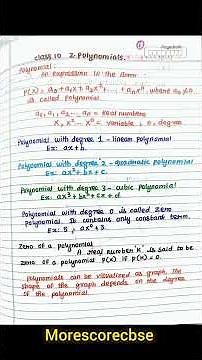 class 10 2. Polynomials.
Polynomial:
An expression in the form
P(x) = a₀ + a₁x + a₂x² + ... + aₙxⁿ, where aₙ ≠ 0
is called Polynomial
a₀, a₁, a₂ ... aₙ = Real numbers
x = variable
Polynomial with degree 1 - linear Polynomial
Ex: ax + b.
Polynomial with degree 2 - quadratic polynomial
Ex: ax² + bx + c.
Polynomial with degree 3 - cubic polynomial
Ex: ax³ + bx² + cx + d
Polynomial with degree 0 is called zero
Polynomial. It contains only constant term.
Ex: 5,
Zero of a polynomial
A real number 'k' is said to be
zero of a polynomial P(x) if P(k) = 0.
Polynomials can be visualized as graph, the
shape of the graph depends on the degree
of the polynomial
Morescorecbse